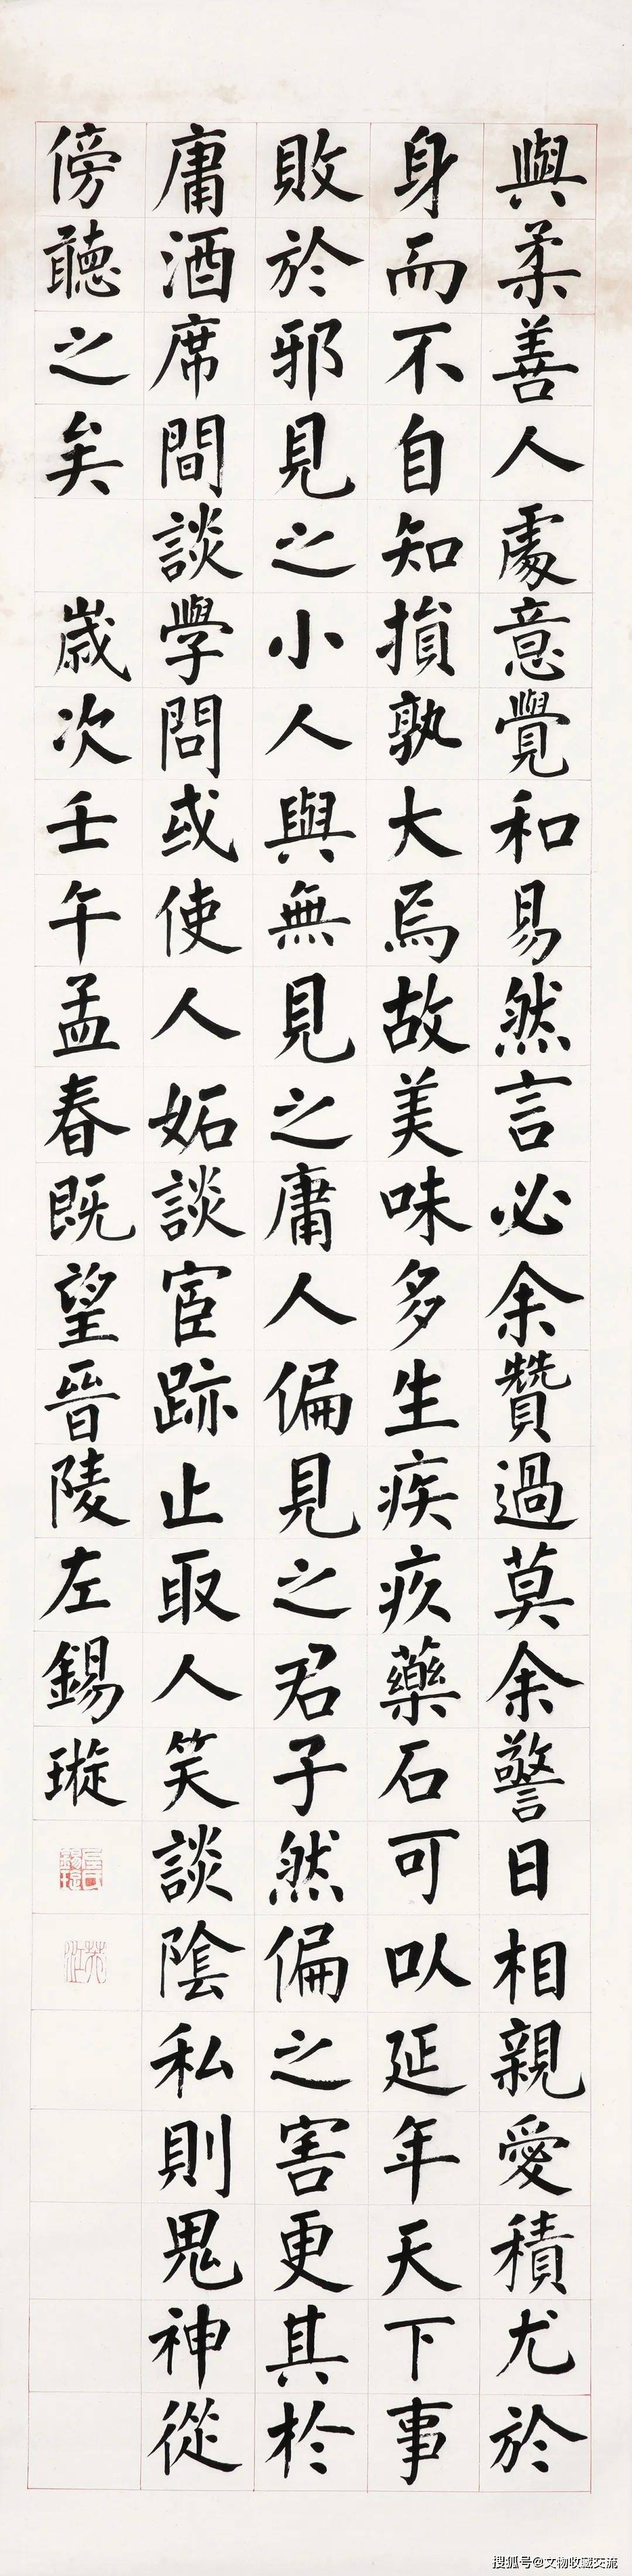 與柔善人處意覺和易然言必余贊過莫余警日相親愛積尤於
身而不自知損孰大焉故美味多生疾疢藥石可以延年天下事
敗於邪見之小人與無見之庸人偏見之君子然偏之害更甚於
庸酒席間談學問或使人妬談宦跡止取人笑談陰私則鬼神從
傍聽之矣 歲次壬午孟春既望晉陵左錫璇
搜狐号@文物收藏交流